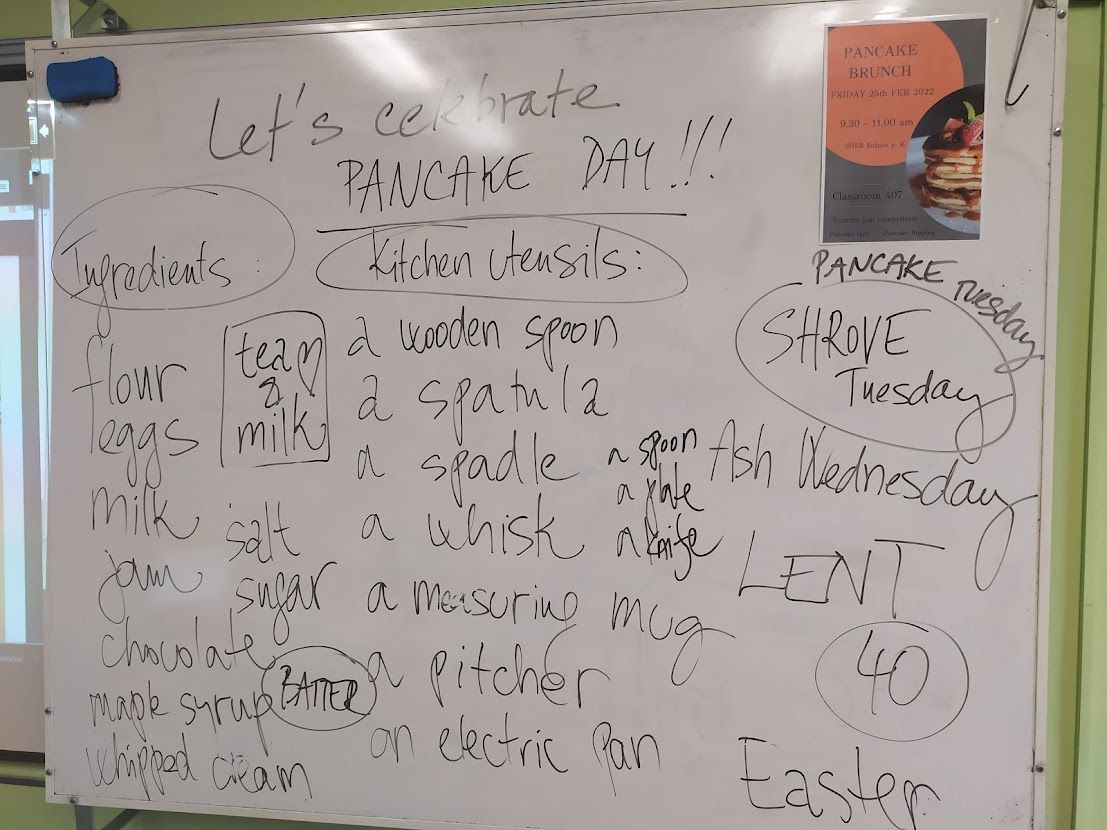 Let's celebrate
PANCAKE DAY!!!
PANCAKE
BRUNCH
FRIDAY 25th FEB 2022
9,30 - 11,00 am
SŠIEŘ Rožnov p. R.
Classroom 407
Yummy jam competition
Pancake race Pancake flipping
Ingredients :
flour
eggs
milk
jam
chocolate
maple syrup
whipped cream
team
&
milk
salt
sugar
BATTER
Kitchen utensils:
a wooden spoon
a spatula
a spadle
a whisk
a measuring mug
a pitcher
an electric pan
a spoon
a plate
a knife
PANCAKE TUESDAY
SHROVE
Tuesday
Ash Wednesday
LENT
40
Easter